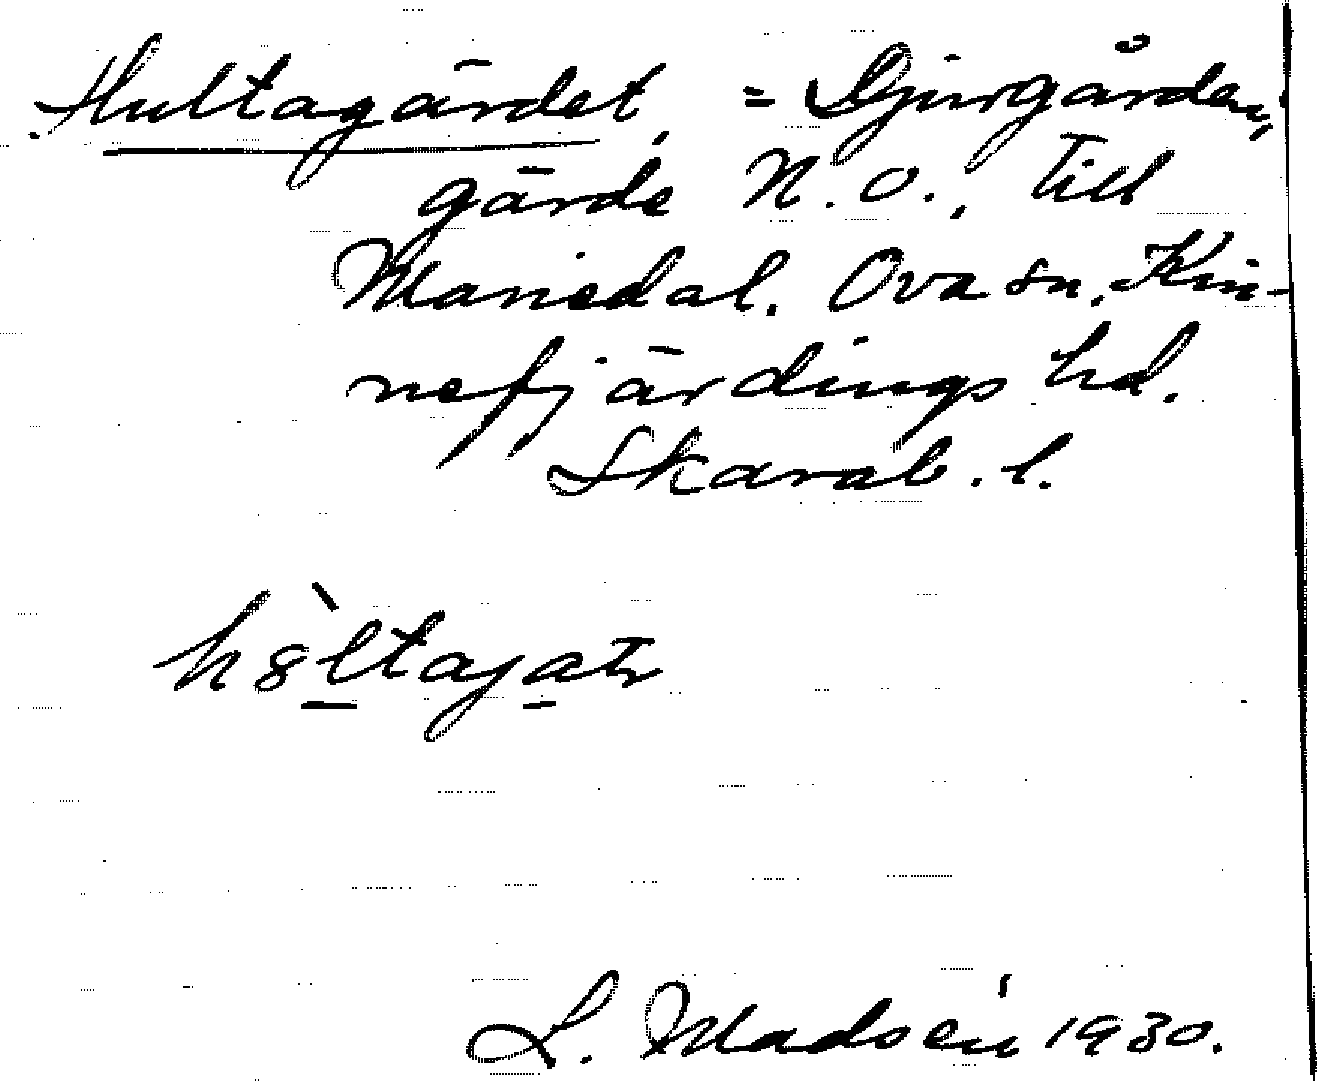 Hultagärdet, = Djurgården,
gärde N.O., till
Mariedal. Ova sn, Kin-
nefjärdings hd.
Skarab. l.
L. Madsén 1930.